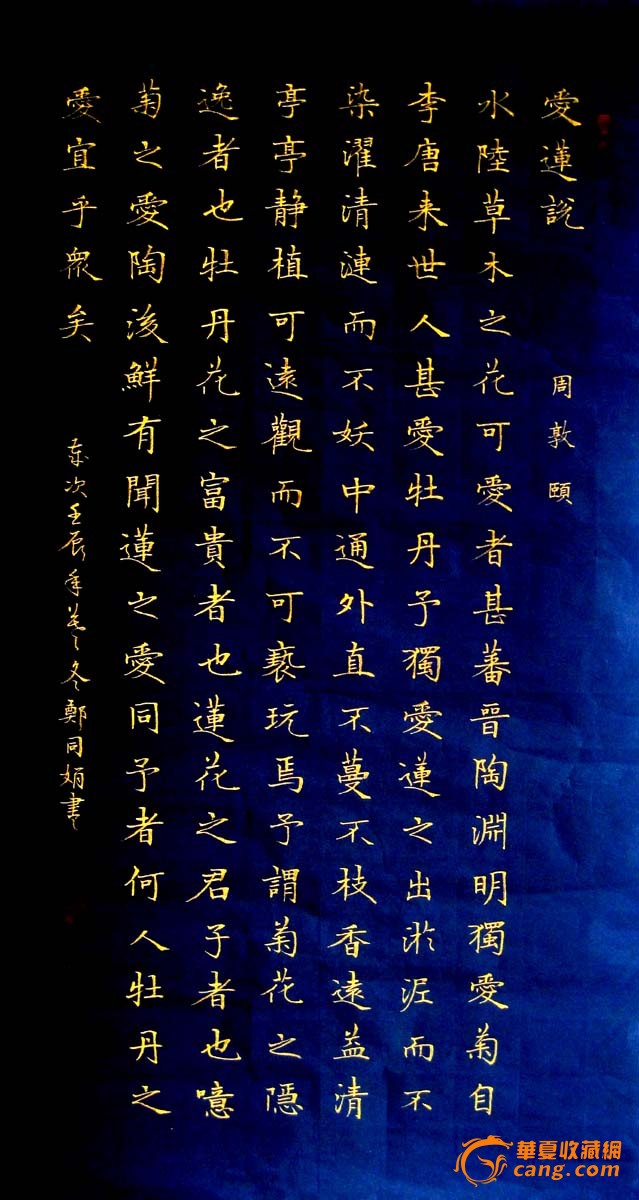 愛蓮說 周敦頤
水陸草木之花可愛者甚蕃晉陶淵明獨愛菊自
李唐来世人甚愛牡丹予獨愛蓮之出淤泥而不
染濯清漣而不妖中通外直不蔓不枝香遠益清
亭亭静植可遠觀而不可亵玩焉予謂菊花之隱
逸者也牡丹花之富貴者也蓮花之君子者也噫
菊之愛陶後鮮有聞蓮之愛同予者何人牡丹之
愛宜乎衆矣
歲次壬辰年冬鄭同娟書
華夏收藏網
cang.com